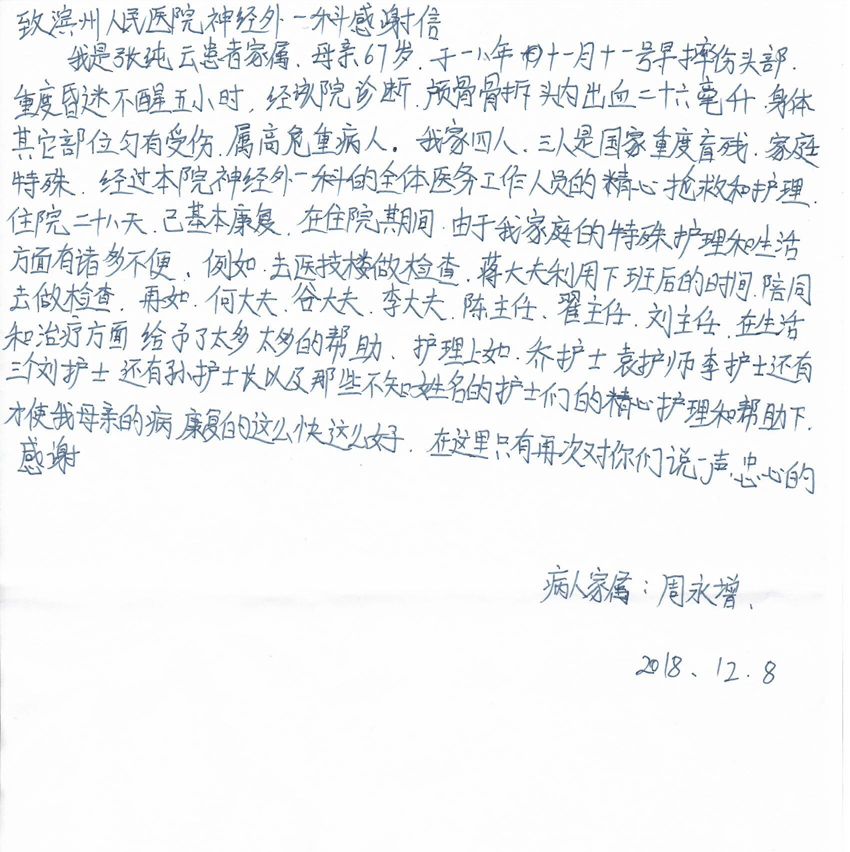 致滨州人民医院神经外一科感谢信
我是张纯云患者家属、母亲67岁、于一八年十一月十一号早摔伤头部、
重度昏迷不醒五小时，经该院诊断、颅骨骨折头内出血二十六毫升、身体
其它部位匀有受伤、属高危重病人。我家四人、三人是国家重度盲残、家庭
特殊、经过本院神经外一科的全体医务工作人员的精心抢救和护理、
住院二十八天、已基本康复、在住院其期间、由于我家庭的特殊护理和生活
方面有诸多不便、例如、去医技楼做检查、蒋大夫利用下班后的时间、陪同
去做检查、再如、何大夫、谷大夫、李大夫、陈主任、翟主任、刘主任、在生活
和治疗方面给予了太多太多的帮助、护理上如、乔护士袁护师李护士还有
三个刘护士还有孙护士长以及那些不知姓名的护士们的精心护理和帮助下、
才使我母亲的病康复的这么快这么好、在这里只有再次对你们说一声、忠心的
感谢
病人家属：周永增、
2018、12.8